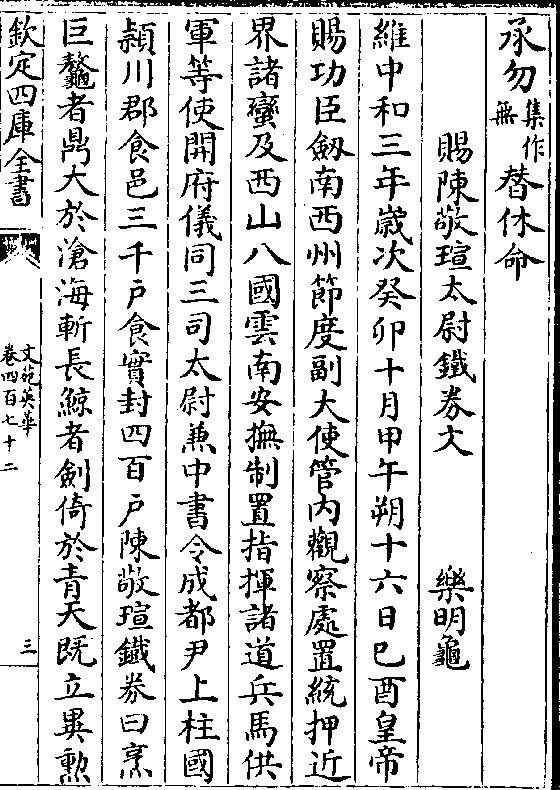 承勿集作無替休命
賜陳敬瑄太尉鐵券文 樂明龜
維中和三年歲次癸卯十月甲午朔十六日已酉皇帝
賜功臣劔南西州節度副大使管內觀察處置統押近
界諸蠻及西山八國雲南安撫制置指揮諸道兵馬供
軍等使開府儀同三司太尉兼中書令成都尹上柱國
潁川郡食邑三千戶食實封四百戶陳敬瑄鐵券曰烹
巨鼇者鼎大於滄海斬長鯨者劍倚於青天既立異勲
欽定四庫全書
文苑英華
卷四百七十二
三